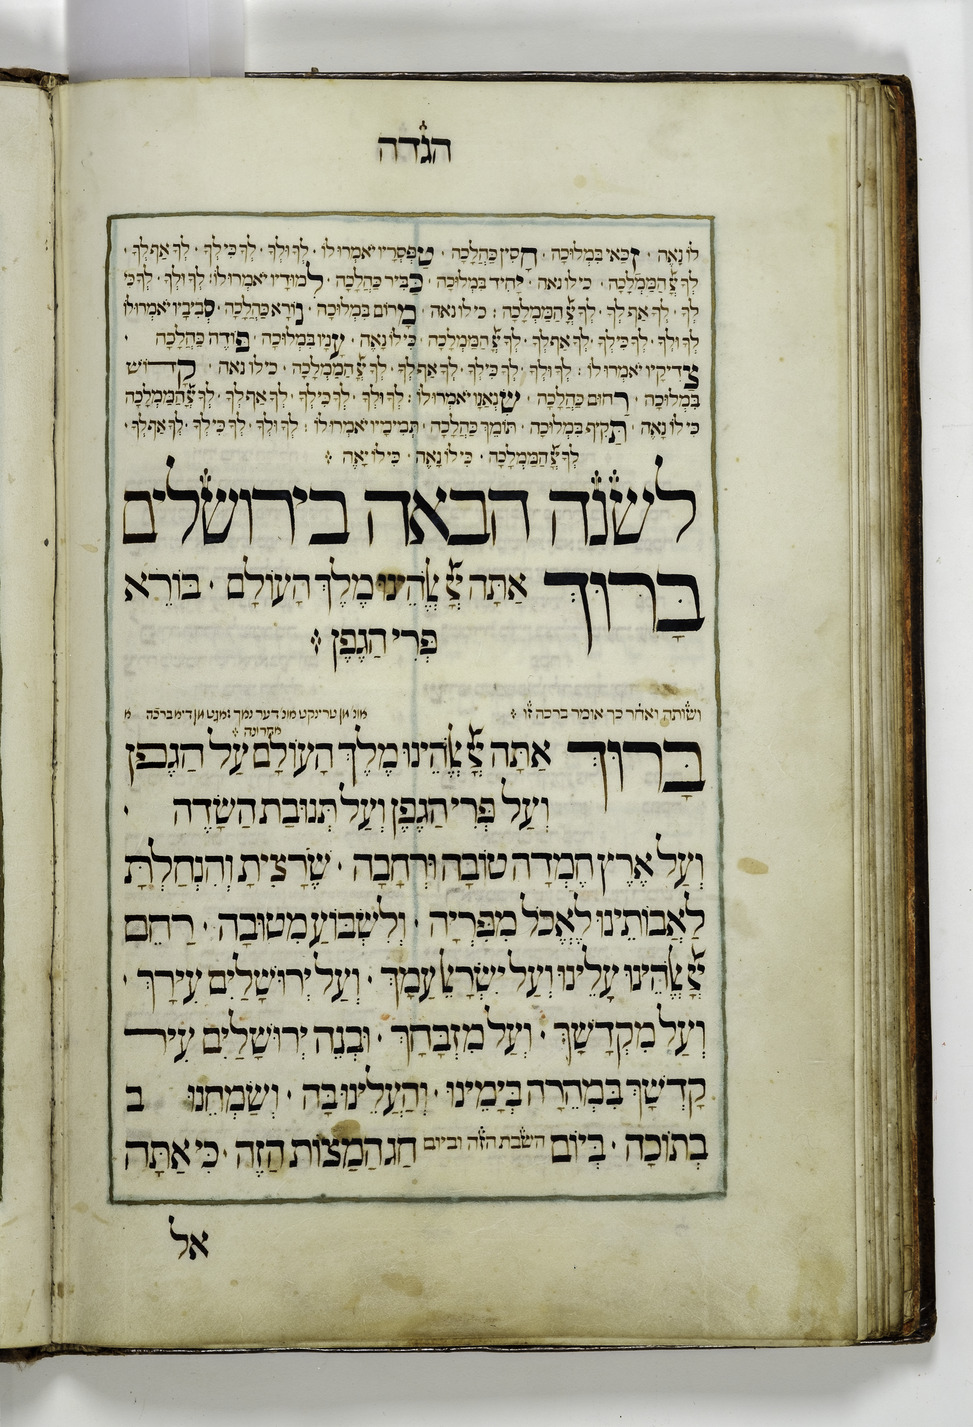 הגדה
לוֹ נָאֶה · זַכַּאי בִּמְלוּכָה · חָסִין כַּהֲלָכָה · טַפְסְרָיו יֹאמְרוּ לוֹ · לְךָ וּלְךָ · לְךָ כִּי לְךָ · לְךָ אַף לְךָ ·
לְךָ יְיָ הַמַּמְלָכָה · כי לו נאה · יָחִיד בִּמְלוּכָה · כַּבִּיר כַּהֲלָכָה · לִמּוּדָיו יֹאמְרוּ לוֹ : לְךָ וּלְךָ · לְךָ כִּי
לְךָ · לְךָ אַף לְךָ · לְךָ יְיָ הַמַּמְלָכָה : כי לו נאה · מָרוֹם בִּמְלוּכָה · נוֹרָא כַּהֲלָכָה · סְבִיבָיו יֹאמְרוּ לוֹ
לְךָ וּלְךָ · לְךָ כִּי לְךָ · לְךָ אַף לְךָ · לְךָ יְיָ הַמַּמְלָכָה · כִּי לוֹ נָאֶה · עָנָיו בִּמְלוּכָה · פּוֹדֶה כַּהֲלָכָה ·
צַדִּיקָיו יֹאמְרוּ לוֹ : לְךָ וּלְךָ · לְךָ כִּי לְךָ · לְךָ אַף לְךָ · לְךָ יְיָ הַמַּמְלָכָה · כי לו נאה · קָדוֹשׁ
בִּמְלוּכָה · רַחוּם כַּהֲלָכָה · שִׁנְאַנָּיו יֹאמְרוּ לוֹ : לְךָ וּלְךָ · לְךָ כִּי לְךָ · לְךָ אַף לְךָ · לְךָ יְיָ הַמַּמְלָכָה
כִּי לוֹ נָאֶה · תַּקִּיף בִּמְלוּכָה · תּוֹמֵךְ כַּהֲלָכָה · תְּמִימָיו יֹאמְרוּ לוֹ : לְךָ וּלְךָ · לְךָ כִּי לְךָ · לְךָ אַף לְךָ ·
לְךָ יְיָ הַמַּמְלָכָה · כִּי לוֹ נָאֶה · כִּי לוֹ יָאֶה
לשנה הבאה בירושלים
בָּרוּךְ אַתָּה יְיָ אֱלֹהֵינוּ מֶלֶךְ הָעוֹלָם · בּוֹרֵא
פְּרִי הַגֶּפֶן
ושותה ואחר כך אומר ברכה זו
בָּרוּךְ אַתָּה יְיָ אֱלֹהֵינוּ מֶלֶךְ הָעוֹלָם עַל הַגֶּפֶן
וְעַל פְּרִי הַגֶּפֶן וְעַל תְּנוּבַת הַשָּׂדֶה ·
וְעַל אֶרֶץ חֶמְדָה טוֹבָה וּרְחָבָה · שֶׁרָצִיתָ וְהִנְחַלְתָּ
לַאֲבוֹתֵינוּ לֶאֱכֹל מִפִּרְיָה · וְלִשְׂבּוֹעַ מִטּוּבָה · רַחֵם
יְיָ אֱלֹהֵינוּ עָלֵינוּ וְעַל יִשְׂרָאֵל עַמָּךְ · וְעַל יְרוּשָׁלַיִם עִירָךְ ·
וְעַל מִקְדָשָׁךְ · וְעַל מִזְבָּחָךְ · וּבְנֵה יְרוּשָׁלַיִם עִיר
קָדְשָׁךְ בִּמְהֵרָה בְּיָמֵינוּ · וְהַעֲלֵינוּ בָּהּ · וְשַׂמְּחֵנוּ ב
בְתוֹכָהּ · בְּיוֹם השבת הזה וביום חַג הַמַּצּוֹת הַזֶּה · כִּי אַתָּה
אל